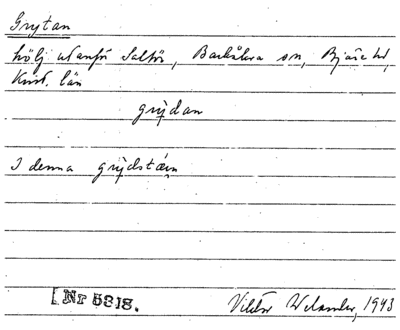 Grytan
hölj utanför Saltör, Barkåkra sn, Bjäre hd,
Krist. län
gry̆dan
I denna gry̆dstæ̣i̯n
[Nr 5818.
Viktor Welander, 1943